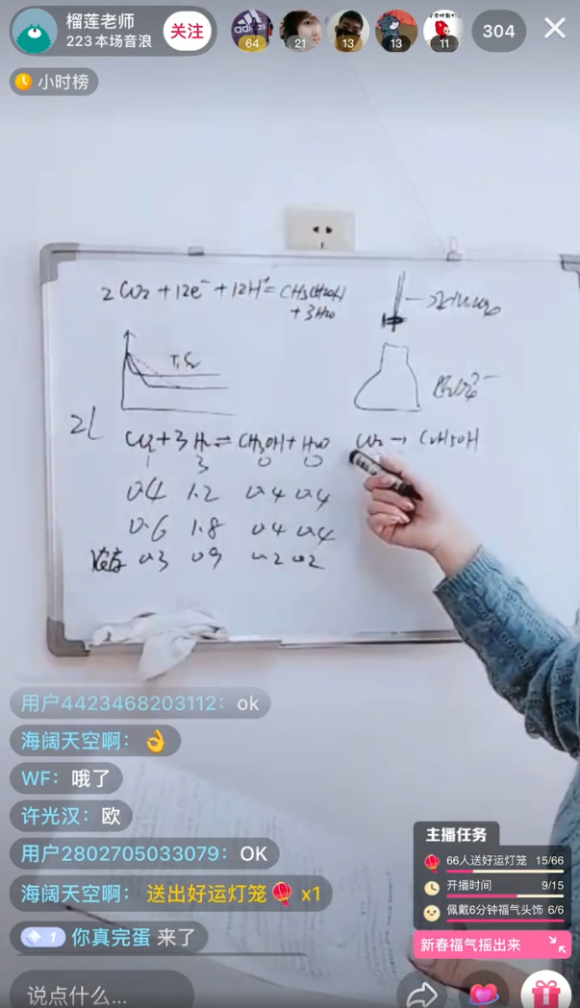 榴莲老师
223本场音浪
关注
64
21
13
13
11
304
小时榜
2CO2+12e⁻+12H⁺=CH3CH2OH
+3H2O
2L
CO2+3H2⇌CH3OH+H2O
CO2→C2H5OH
1 3 0 0
0.4 1.2 0.4 0.4
0.6 1.8 0.4 0.4
0.3 0.9 0.2 0.2
用户4423468203112：ok
海阔天空啊：👌
WF：哦了
许光汉：欧
用户2802705033079：OK
海阔天空啊：送出好运灯笼 x1
1 你真完蛋 来了
主播任务
66人送好运灯笼 15/66
开播时间 9/15
佩戴6分钟福气头饰 6/6
新春福气摇出来
说点什么...